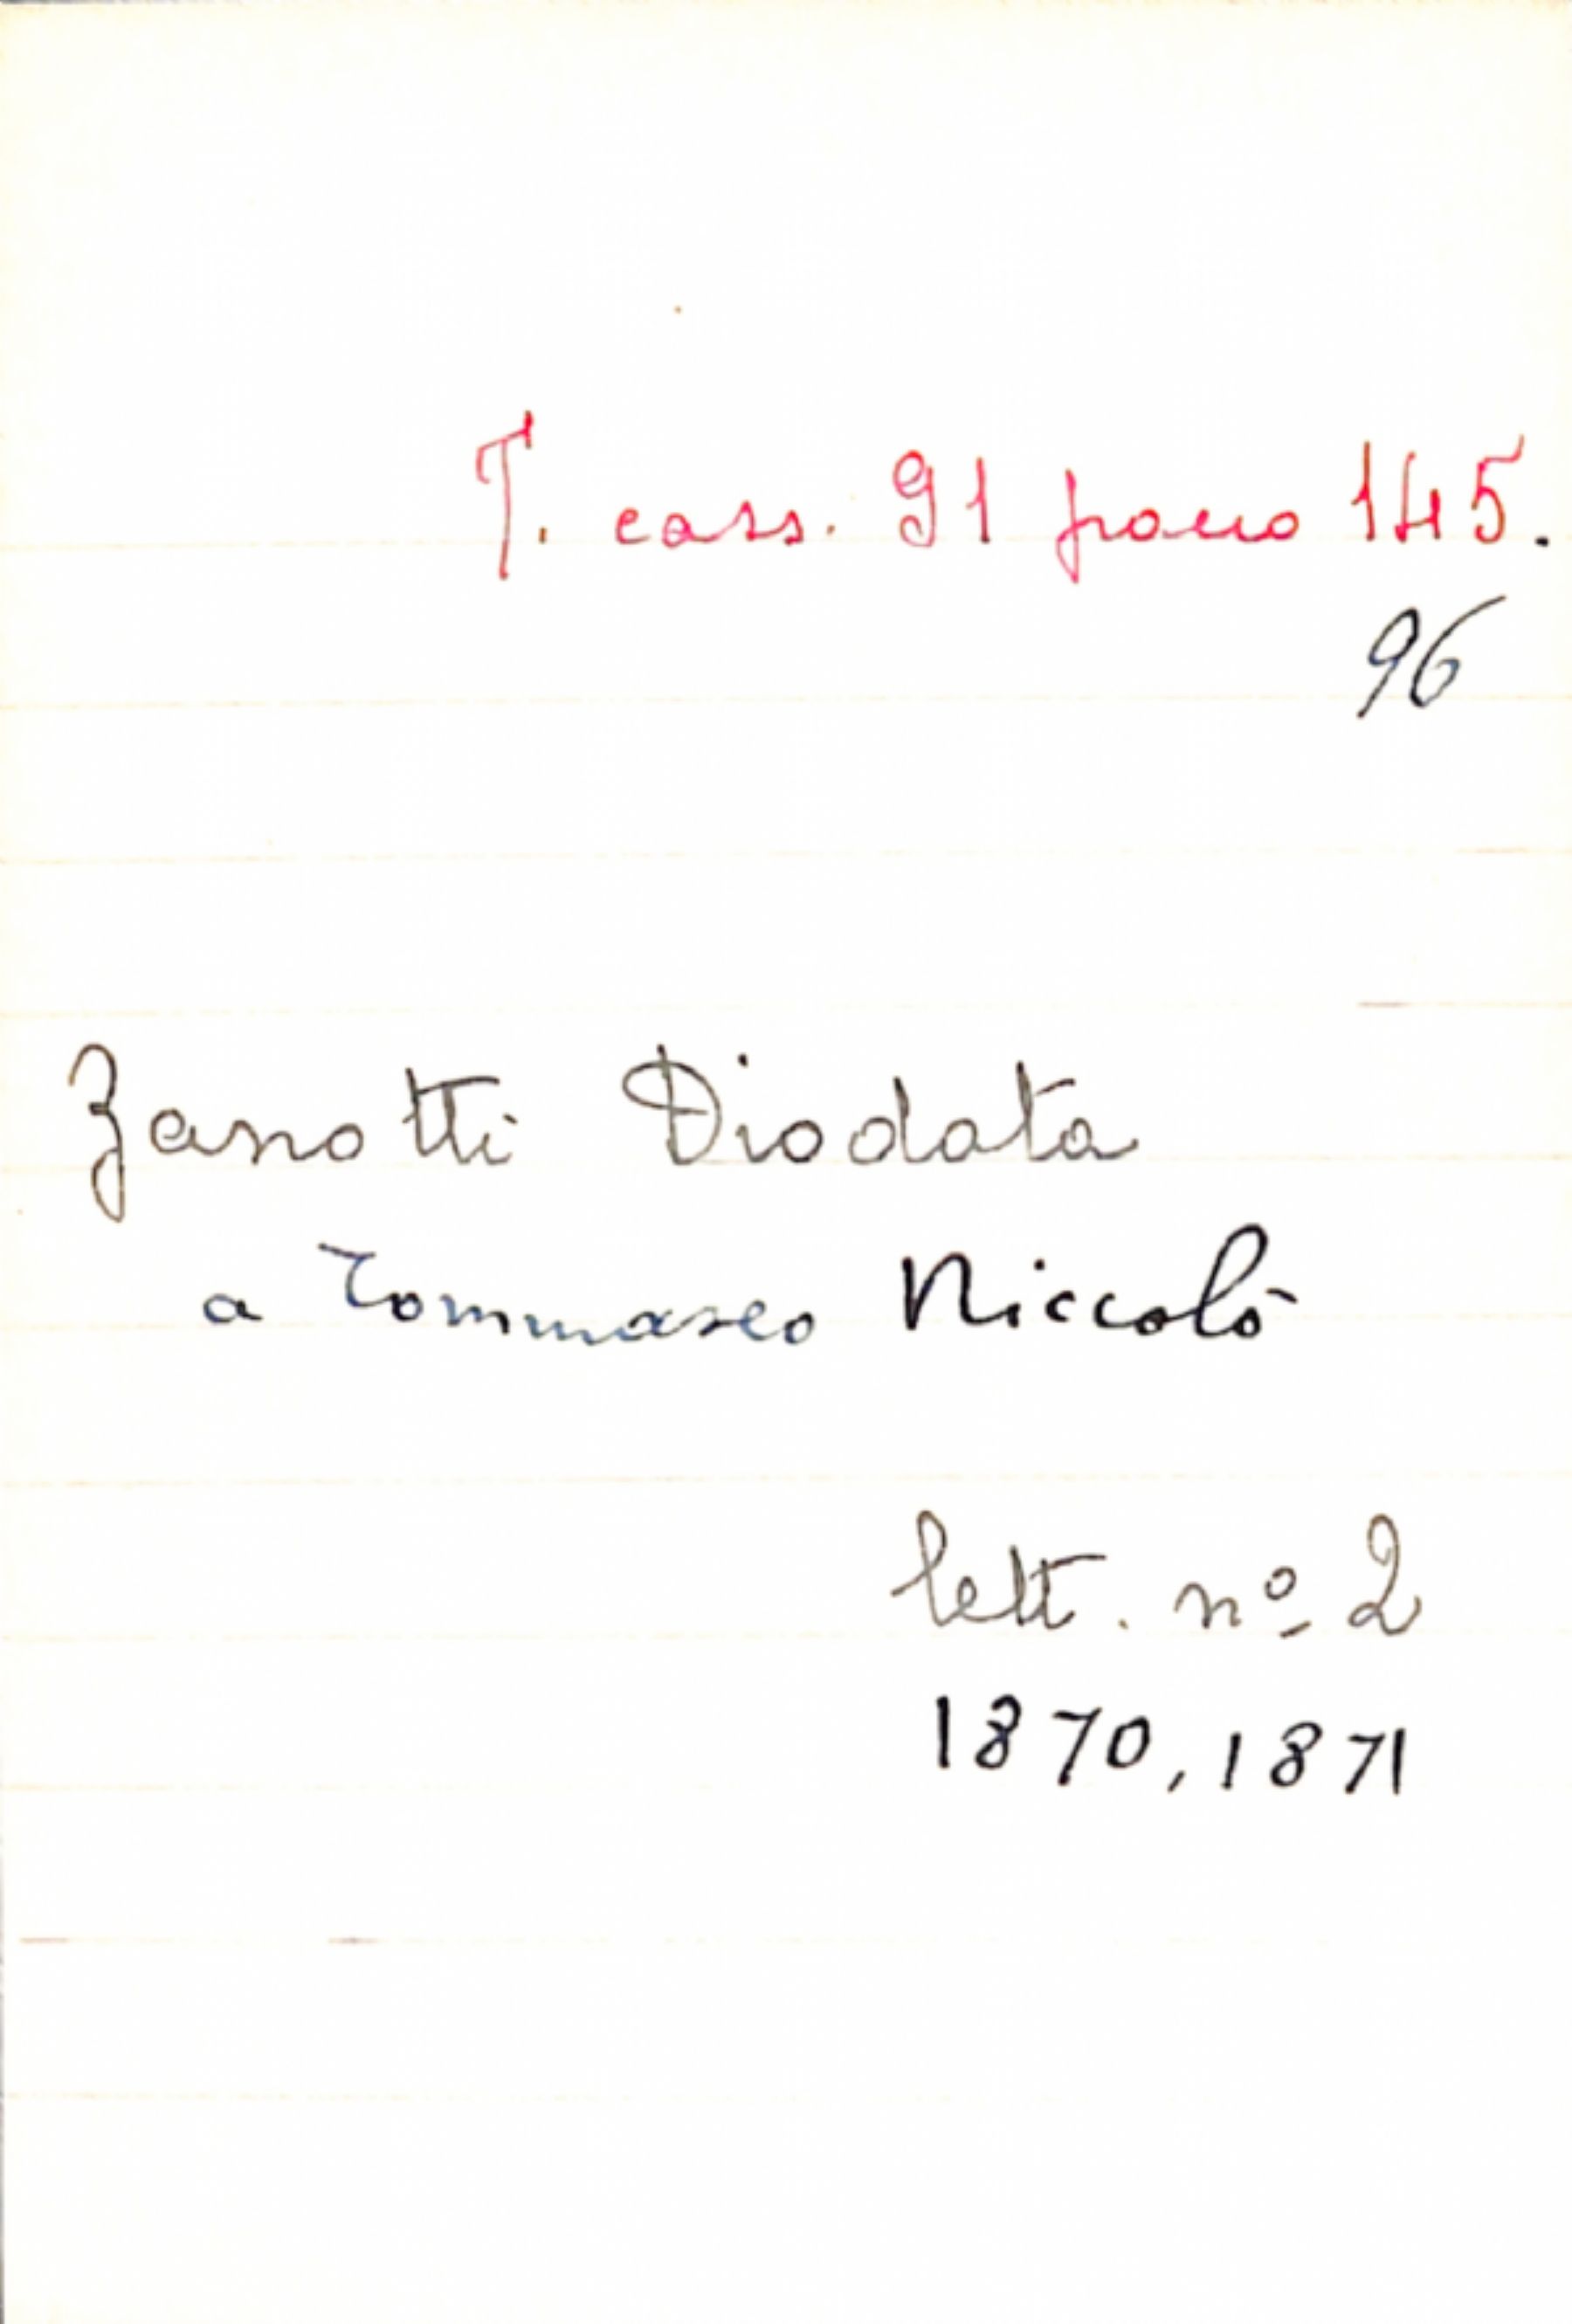 T. cass. 91 panno 145.
96
Zanotti Diodata
a Tommaseo Niccolò
lett. nº 2
1870, 1871